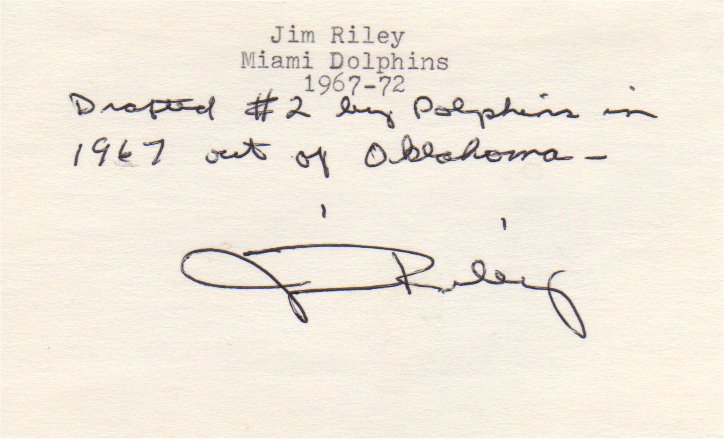 Jim Riley
Miami Dolphins
1967-72
Drafted #2 by Dolphins in
1967 out of Oklahoma -
Jim Riley